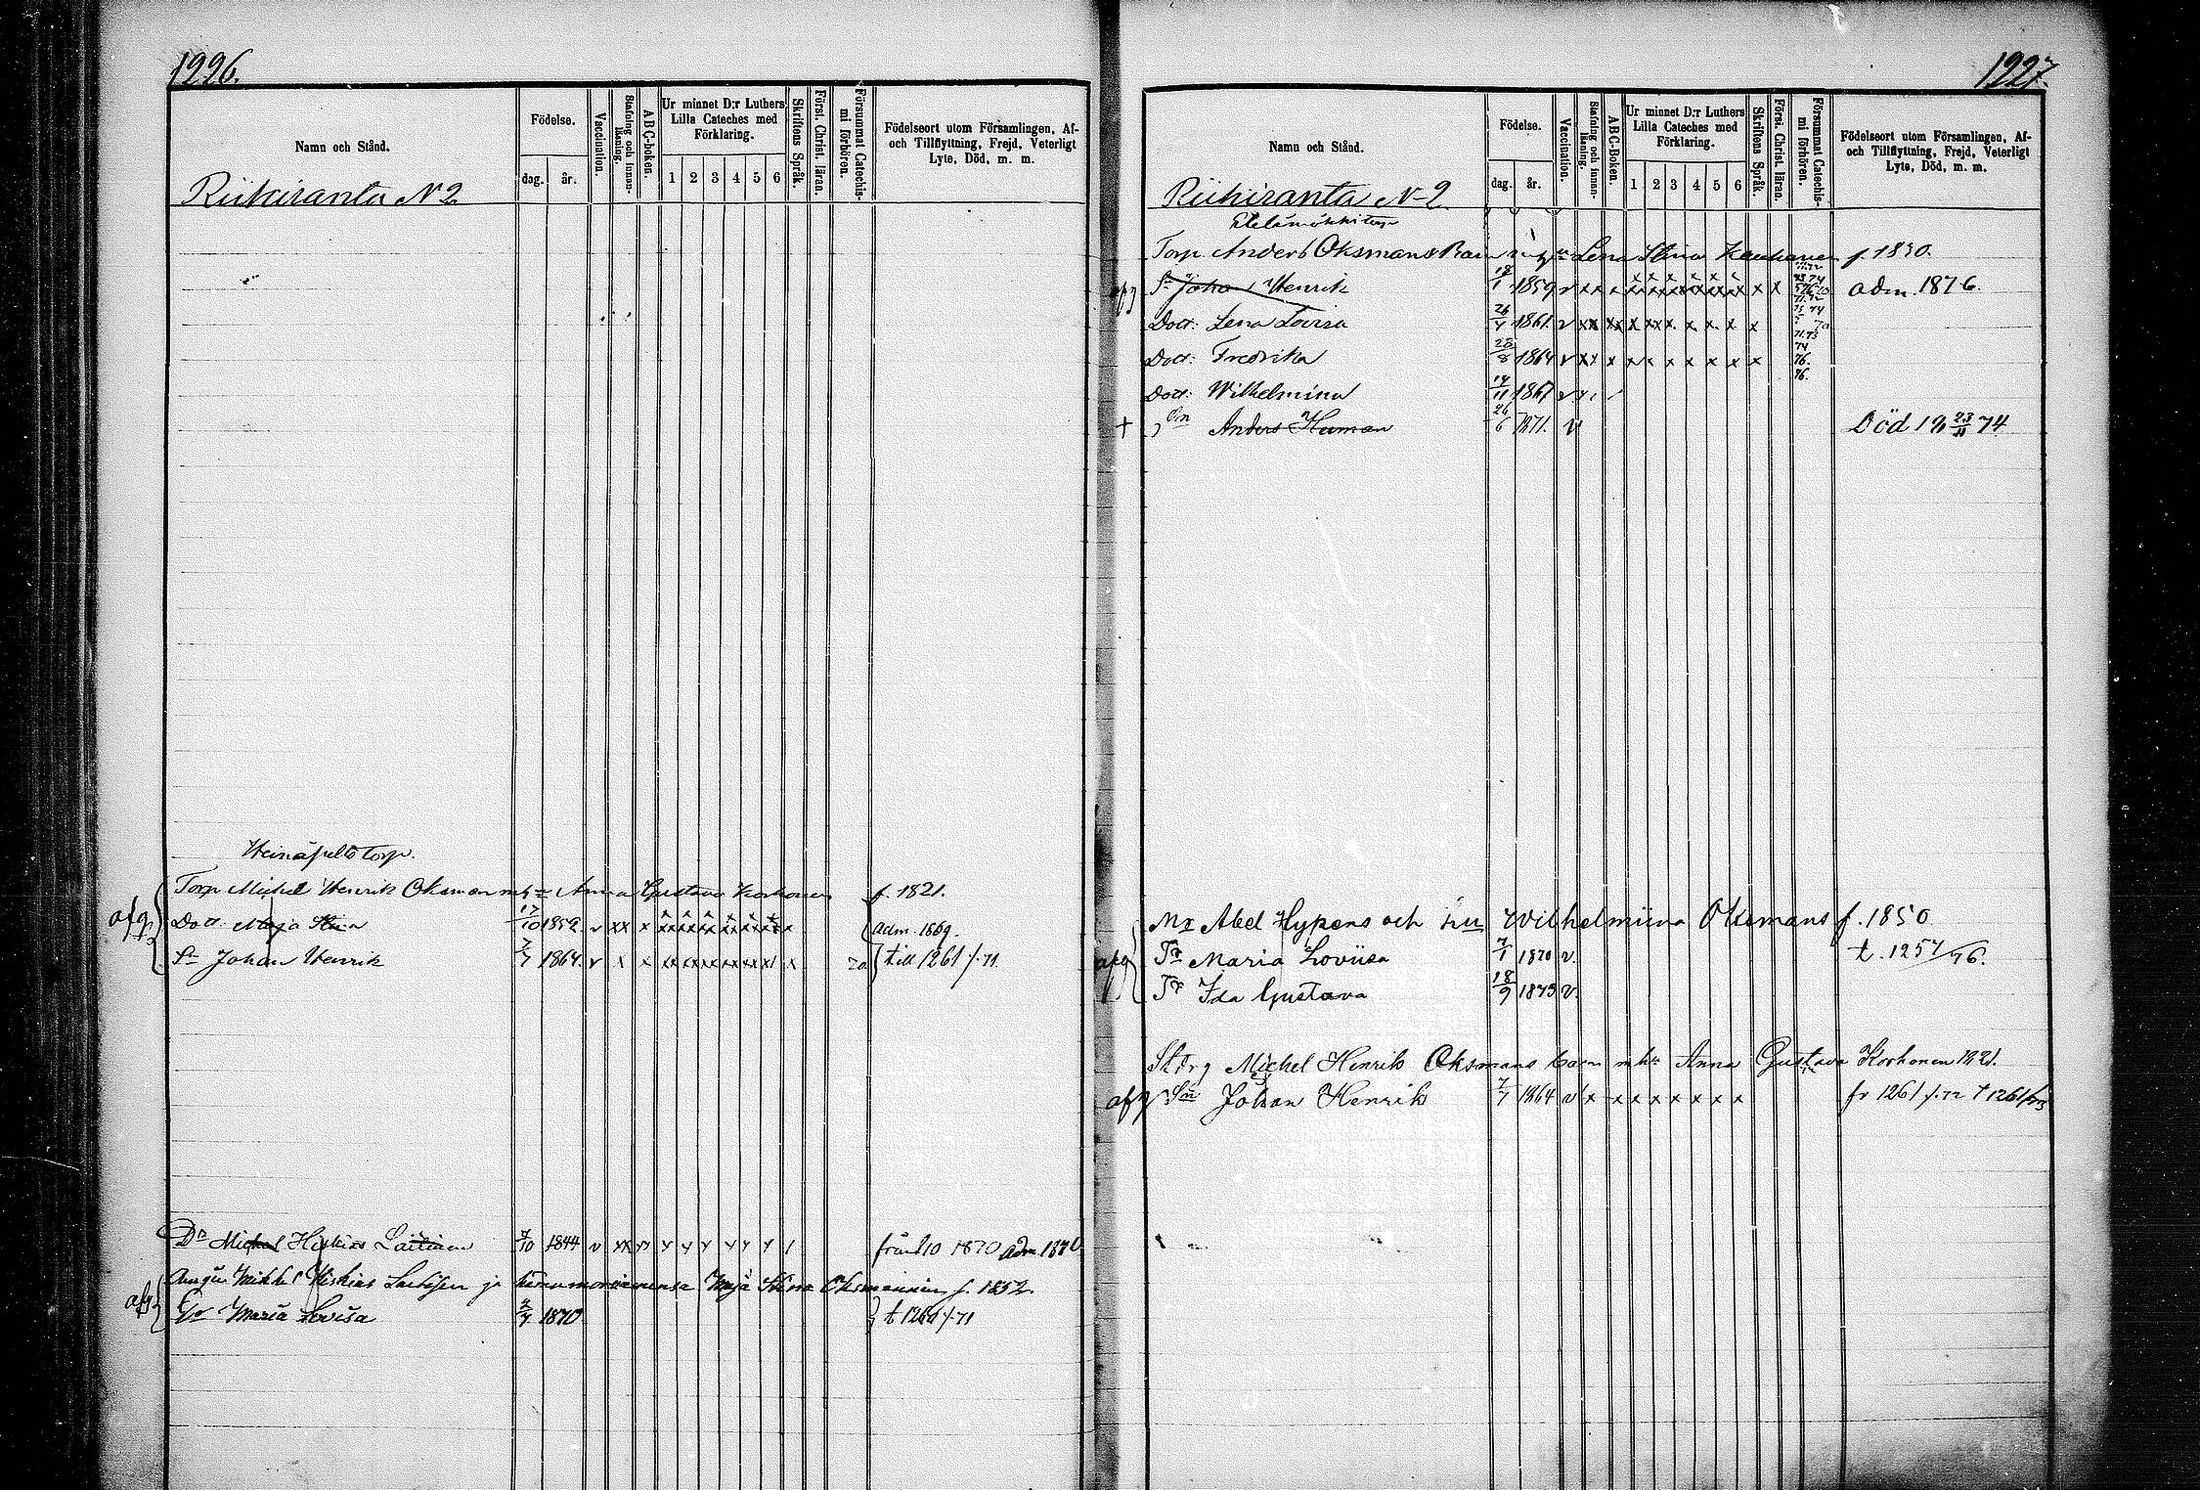 1226.
Namn och Stånd.
Födelse.
dag.
år.
Vaccination.
Stafning och innon-läsning.
ABC-boken.
Ur minnet D:r Luthers Lilla Cateches med Förklaring.
1 2 3 4 5 6
Skriftens Språk.
Först. Christ. läran.
Försummat Catechis-mi förhören.
Födelseort utom Församlingen, Af- och Tillflyttning, Frejd, Veterligt Lyte, Död, m. m.
Riikiranta N 2
Heinäpelto torp.
Torp Michel Henrik Oksman m h Anna Gustava Korhonen f. 1821.
Dott. Maja Stina 17/10 1852 v xx x adm. 1869.
Sn Johan Henrik 7/7 1864. v x x 70 till 1261 /. 71
afg
Dn Michel Hiskias Laitinen 7/10 1844 v 1870 adm 1870
Mikkel Hiskias ja Maja Stina f. 1852.
afg Maria Lovisa 1870 t 1261 /. 71
1227.
Namn och Stånd.
Födelse.
dag.
år.
Vaccination.
Stafning och innan-läsning.
ABC-Boken.
Ur minnet D:r Luthers Lilla Cateches med Förklaring.
1 2 3 4 5 6
Skriftens Språk.
Först. Christ. läran.
Försummat Catechis-mi förhören.
Födelseort utom Församlingen, Af- och Tillflyttning, Frejd, Veterligt Lyte, Död, m. m.
Riikiranta N 2
Etelämökki torp
Torp Anders Oksmans Barn Lena Stina Kauhanen f. 1830.
afg Sn Johan Henrik 18/1 1859 v xx x adm. 1876.
Dott: Lena Lovisa 26/4 1861. v xx xx
Dott: Fredrika 28/8 1864 v xx x
Dott: Wilhelmina 14/11 1867 v
+ Sn Anders Herman 26/6 1871. v Död 18 23/11 74
Abel Hypens och hu Wilhelmiina Oksmans f. 1850
Tr Maria Loviisa 7/1 1870 v. t. 1257/76.
afg Tr Ida Gustava 18/9 1873 v.
Michel Henrik Oksmans barn m h Anna Gustava Korhonen 1821.
afg Sn Johan Henrik 7/7 1864 v x x x x x x x x fr 1261 /. 72 t 1261/73